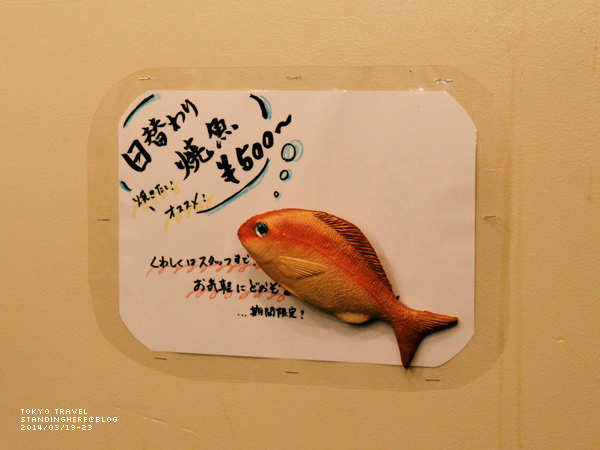 日替わり
焼魚
¥500〜
焼きたい!
オススメ!
くわしくはスタッフまで
お気軽にどおぞ
...期間限定?
TOKYO TRAVEL
STANDINGHERE@BLOG
2014/03/19-23